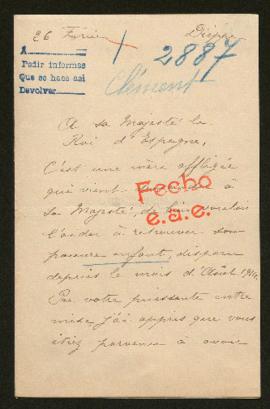 26 Février
Dieppe
A
Pedir informes
Que se hace así
Devolver
2887
Clément
A sa Majesté le
Roi d'Espagne,
C'est une mère affligée
qui vient à
sa Majesté, de bien vouloir
l'aider à retrouver son
pauvre enfant, disparu
depuis le mois d'Août 1914.
Fecho
e.a.e.
Par votre puissante entre
mise j'ai appris que vous
étiez parvenu à avoir